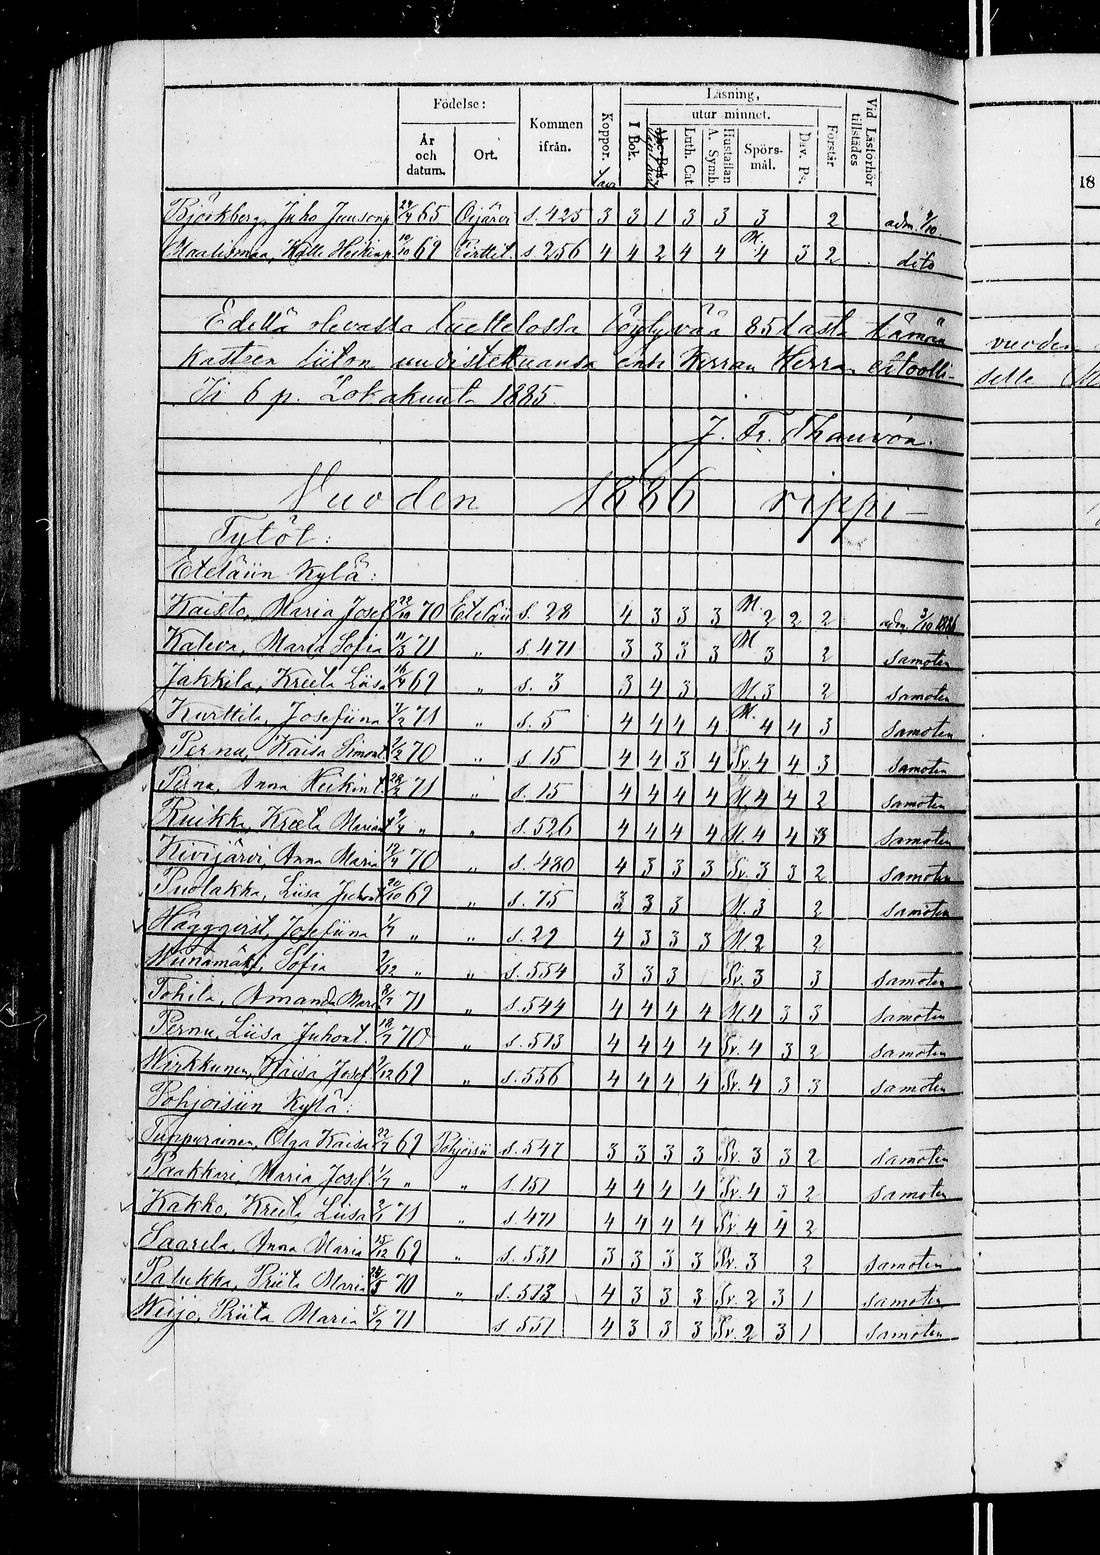 Födelse: Kommen ifrån. Koppor. Läsning, Vid Läsförhör tillstädes
År och datum. Ort. I Bok. utur minnet. Förstår
Luth. Cat. Hustaflan A. Symb. Spörsmål. Dav. Ps.
Björkberg, Juho Juusonp 65 Oijärvi s. 425 3 3 1 3 3 3 2 adm. 4/10.
Heikinp 10/10 69 s. 256 4 4 2 4 4 M. 4 3 2 dito
Edellä olevassa luettelossa löytyvää 85 lasta tämän vuoden
Kasteen liiton uudistettuansa Herran Herran
Ii 6 p. Lokakuuta 1885.
J. Fr. Thauvón.
Vuoden 1886 rippi-
Tytöt:
Eteläiin Kylä:
Kaisto, Maria Josef 22/10 70 Eteläii s. 28 4 3 3 3 M 2 2 2 adm. 3/10 1886
Kaleva, Maria Sofia 11/3 71 „ s. 471 3 3 3 3 M 3 2 samoten
Jakkila, Kreeta Liisa 69 „ s. 3 3 4 3 M. 3 2 samoten
Kurttila, Josefiina 71 „ s. 5 4 4 4 4 M. 4 4 3 samoten
Pernu, Kaisa Simont. 70 „ s. 15 4 4 3 4 Sv. 4 4 3 samoten
Perna, Anna Heikint. 71 „ s. 15 4 4 4 4 M. 4 4 2 samoten
Ruikka, Kreeta Mariant „ „ s. 526 4 4 4 4 M. 4 4 3 samoten
Kivijärvi, Anna Maria 70 „ s. 480 4 3 3 3 Sv. 3 3 2 samoten
Puolakka, Liisa Juhont 20/10 69 „ s. 75 3 3 3 M. 3 2 samoten
Häggqvist, Josefiina „ „ s. 29 4 3 3 3 M 2 2
Niinamäki, Sofia „ „ s. 554 3 3 3 Sv. 3 3 samoten
Tohila, Amanda Maria 71 „ s. 544 4 4 4 4 M. 4 3 3 samoten
Pernu, Liisa Juhont. 70 „ s. 513 4 4 4 4 Sv. 4 3 2 samoten
Wirkkunen, Kaisa Josef 69 „ s. 556 4 4 4 4 Sv. 4 3 3 samoten
Pohjoisiin Kylä:
Tuppurainen, Olga Kaisa 69 Pohjoisii s. 547 3 3 3 3 Sv. 3 3 2 samoten
Paakkari, Maria Josef „ „ s. 151 4 4 4 4 Sv. 4 3 2 samoten
Kakko, Kreeta Liisa 71 „ s. 471 4 4 4 4 Sv. 4 4 2
Saarela, Anna Maria 69 „ s. 531 3 3 3 3 Sv. 3 2 samoten
Palukka, Priita Maria 70 „ s. 513 4 3 3 3 Sv. 2 3 1 samoten
Weijo, Priita Maria 71 s. 551 4 3 3 3 Sv. 2 3 1 samoten
18